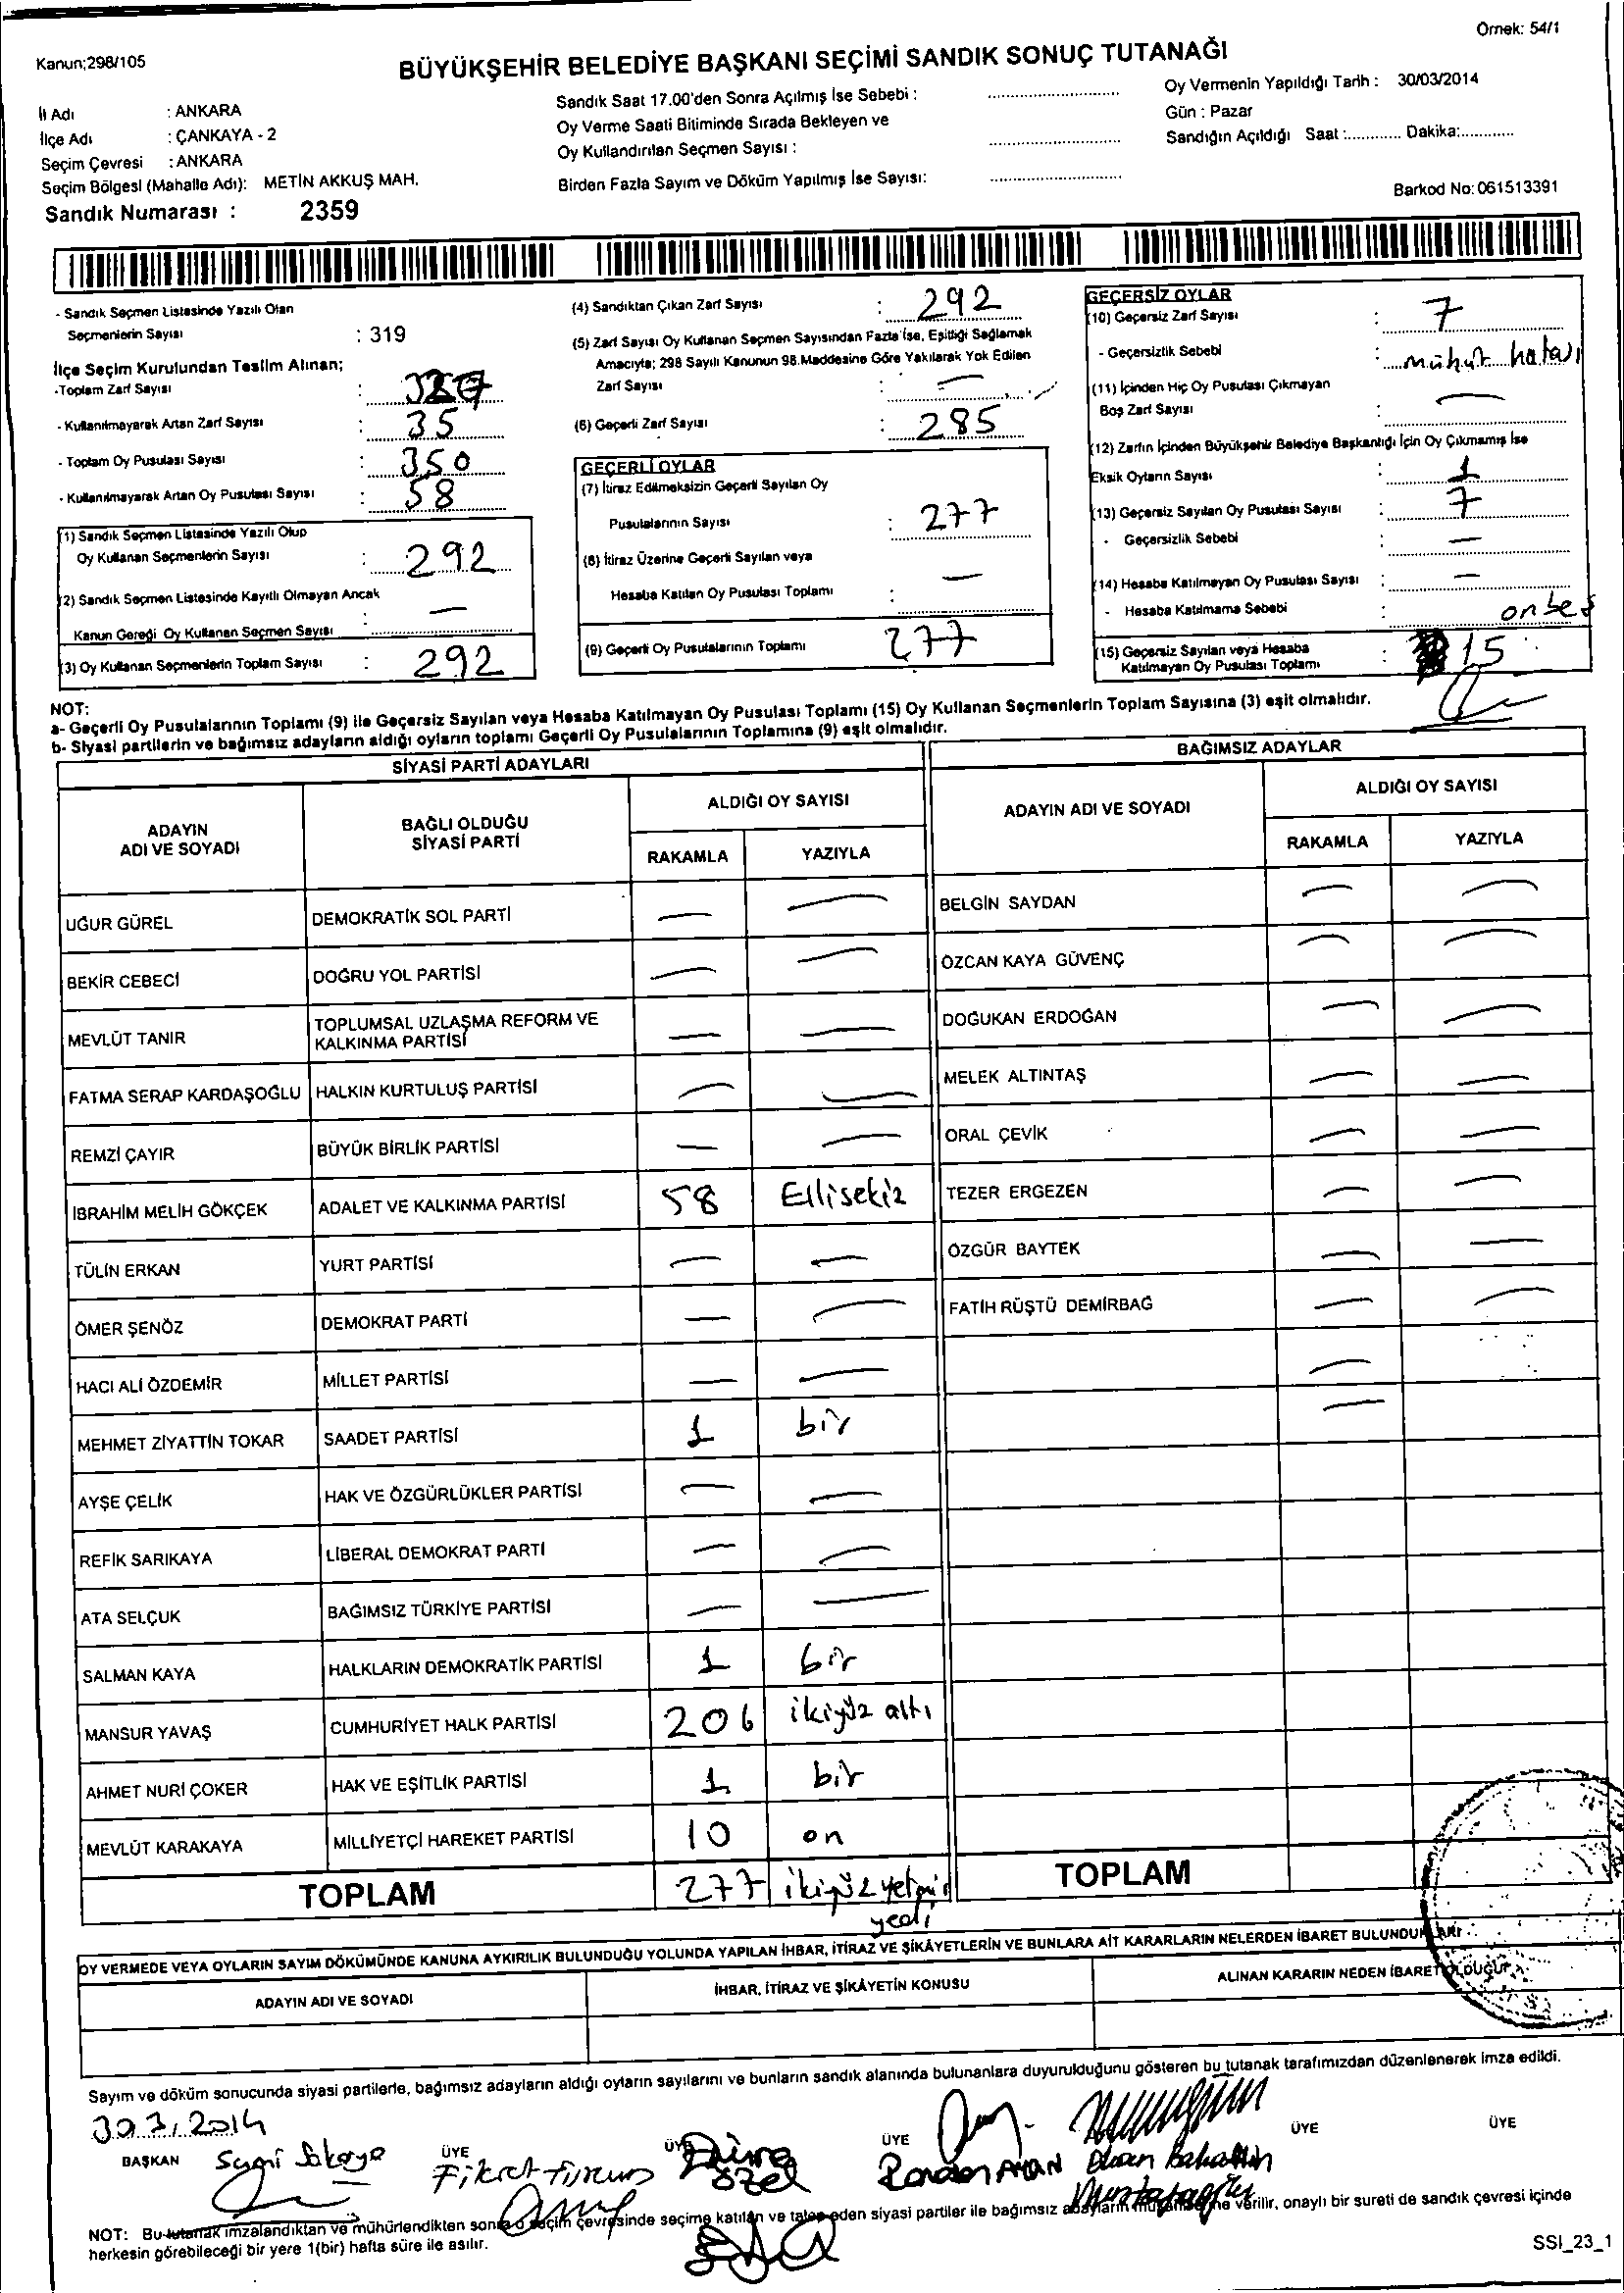 Örnek: 54/1
Kanun;298/105
BÜYÜKŞEHİR BELEDİYE BAŞKANI SEÇİMİ SANDIK SONUÇ TUTANAĞI
İl Adı : ANKARA
İlçe Adı : ÇANKAYA - 2
Seçim Çevresi : ANKARA
Seçim Bölgesi (Mahalle Adı): METİN AKKUŞ MAH.
Sandık Numarası : 2359
Sandık Saat 17.00'den Sonra Açılmış İse Sebebi :
Oy Verme Saati Bitiminde Sırada Bekleyen ve
Oy Kullandırılan Seçmen Sayısı :
Birden Fazla Sayım ve Döküm Yapılmış İse Sayısı:
Oy Vermenin Yapıldığı Tarih : 30/03/2014
Gün : Pazar
Sandığın Açıldığı Saat :............ Dakika:............
Barkod No: 061513391
- Sandık Seçmen Listesinde Yazılı Olan
Seçmenlerin Sayısı : 319
İlçe Seçim Kurulundan Teslim Alınan;
-Toplam Zarf Sayısı :
- Kullanılmayarak Artan Zarf Sayısı : 35
- Toplam Oy Pusulası Sayısı : 350
- Kullanılmayarak Artan Oy Pusulası Sayısı : 58
(1) Sandık Seçmen Listesinde Yazılı Olup
Oy Kullanan Seçmenlerin Sayısı : 292
(2) Sandık Seçmen Listesinde Kayıtlı Olmayan Ancak
Kanun Gereği Oy Kullanan Seçmen Sayısı : —
(3) Oy Kullanan Seçmenlerin Toplam Sayısı : 292
(4) Sandıktan Çıkan Zarf Sayısı : 292
(5) Zarf Sayısı Oy Kullanan Seçmen Sayısından Fazla İse, Eşitliği Sağlamak
Amacıyla; 298 Sayılı Kanunun 98.Maddesine Göre Yakılarak Yok Edilen
Zarf Sayısı : —
(6) Geçerli Zarf Sayısı : 285
GEÇERLİ OYLAR
(7) İtiraz Edilmeksizin Geçerli Sayılan Oy
Pusulalarının Sayısı : 277
(8) İtiraz Üzerine Geçerli Sayılan veya
Hesaba Katılan Oy Pusulası Toplamı : —
(9) Geçerli Oy Pusulalarının Toplamı 277
GEÇERSİZ OYLAR
(10) Geçersiz Zarf Sayısı : 7
- Geçersizlik Sebebi : mühür hatası
(11) İçinden Hiç Oy Pusulası Çıkmayan
Boş Zarf Sayısı : —
(12) Zarfın İçinden Büyükşehir Belediye Başkanlığı İçin Oy Çıkmamış İse
Eksik Oyların Sayısı : 1
(13) Geçersiz Sayılan Oy Pusulası Sayısı : 7
- Geçersizlik Sebebi : —
(14) Hesaba Katılmayan Oy Pusulası Sayısı : —
- Hesaba Katılmama Sebebi : onbeş
(15) Geçersiz Sayılan veya Hesaba
Katılmayan Oy Pusulası Toplamı : 15
NOT:
a- Geçerli Oy Pusulalarının Toplamı (9) ile Geçersiz Sayılan veya Hesaba Katılmayan Oy Pusulası Toplamı (15) Oy Kullanan Seçmenlerin Toplam Sayısına (3) eşit olmalıdır.
b- Siyasi partilerin ve bağımsız adayların aldığı oyların toplamı Geçerli Oy Pusulalarının Toplamına (9) eşit olmalıdır.
SİYASİ PARTİ ADAYLARI
ADAYIN ADI VE SOYADI BAĞLI OLDUĞU SİYASİ PARTİ ALDIĞI OY SAYISI
RAKAMLA YAZIYLA
UĞUR GÜREL DEMOKRATİK SOL PARTİ — —
BEKİR CEBECİ DOĞRU YOL PARTİSİ — —
MEVLÜT TANIR TOPLUMSAL UZLAŞMA REFORM VE KALKINMA PARTİSİ — —
FATMA SERAP KARDAŞOĞLU HALKIN KURTULUŞ PARTİSİ — —
REMZİ ÇAYIR BÜYÜK BİRLİK PARTİSİ — —
İBRAHİM MELİH GÖKÇEK ADALET VE KALKINMA PARTİSİ 58 Ellisekiz
TÜLİN ERKAN YURT PARTİSİ — —
ÖMER ŞENÖZ DEMOKRAT PARTİ — —
HACI ALİ ÖZDEMİR MİLLET PARTİSİ — —
MEHMET ZİYATTİN TOKAR SAADET PARTİSİ 1 bir
AYŞE ÇELİK HAK VE ÖZGÜRLÜKLER PARTİSİ — —
REFİK SARIKAYA LİBERAL DEMOKRAT PARTİ — —
ATA SELÇUK BAĞIMSIZ TÜRKİYE PARTİSİ — —
SALMAN KAYA HALKLARIN DEMOKRATİK PARTİSİ 1 bir
MANSUR YAVAŞ CUMHURİYET HALK PARTİSİ 206 ikiyüz altı
AHMET NURİ ÇOKER HAK VE EŞİTLİK PARTİSİ 1 bir
MEVLÜT KARAKAYA MİLLİYETÇİ HAREKET PARTİSİ 10 on
TOPLAM 277 ikiyüz yetmiş
yedi
BAĞIMSIZ ADAYLAR
ADAYIN ADI VE SOYADI ALDIĞI OY SAYISI
RAKAMLA YAZIYLA
BELGİN SAYDAN — —
ÖZCAN KAYA GÜVENÇ — —
DOĞUKAN ERDOĞAN — —
MELEK ALTINTAŞ — —
ORAL ÇEVİK — —
TEZER ERGEZEN — —
ÖZGÜR BAYTEK — —
FATİH RÜŞTÜ DEMİRBAĞ — —
—
—
TOPLAM
OY VERMEDE VEYA OYLARIN SAYIM DÖKÜMÜNDE KANUNA AYKIRILIK BULUNDUĞU YOLUNDA YAPILAN İHBAR, İTİRAZ VE ŞİKÂYETLERİN VE BUNLARA AİT KARARLARIN NELERDEN İBARET BULUNDUKLARI
ADAYIN ADI VE SOYADI İHBAR, İTİRAZ VE ŞİKÂYETİN KONUSU ALINAN KARARIN NEDEN İBARET OLDUĞU
Sayım ve döküm sonucunda siyasi partilerle, bağımsız adayların aldığı oyların sayılarını ve bunların sandık alanında bulunanlara duyurulduğunu gösteren bu tutanak tarafımızdan düzenlenerek imza edildi.
30.3.2014
BAŞKAN ÜYE ÜYE ÜYE ÜYE ÜYE
Fikret
Özel
NOT: Bu tutanak imzalandıktan ve mühürlendikten sonra o seçim çevresinde seçime katılan ve talep eden siyasi partiler ile bağımsız adayların müşahitlerine verilir, onaylı bir sureti de sandık çevresi içinde
herkesin görebileceği bir yere 1(bir) hafta süre ile asılır.
SSI_23_1